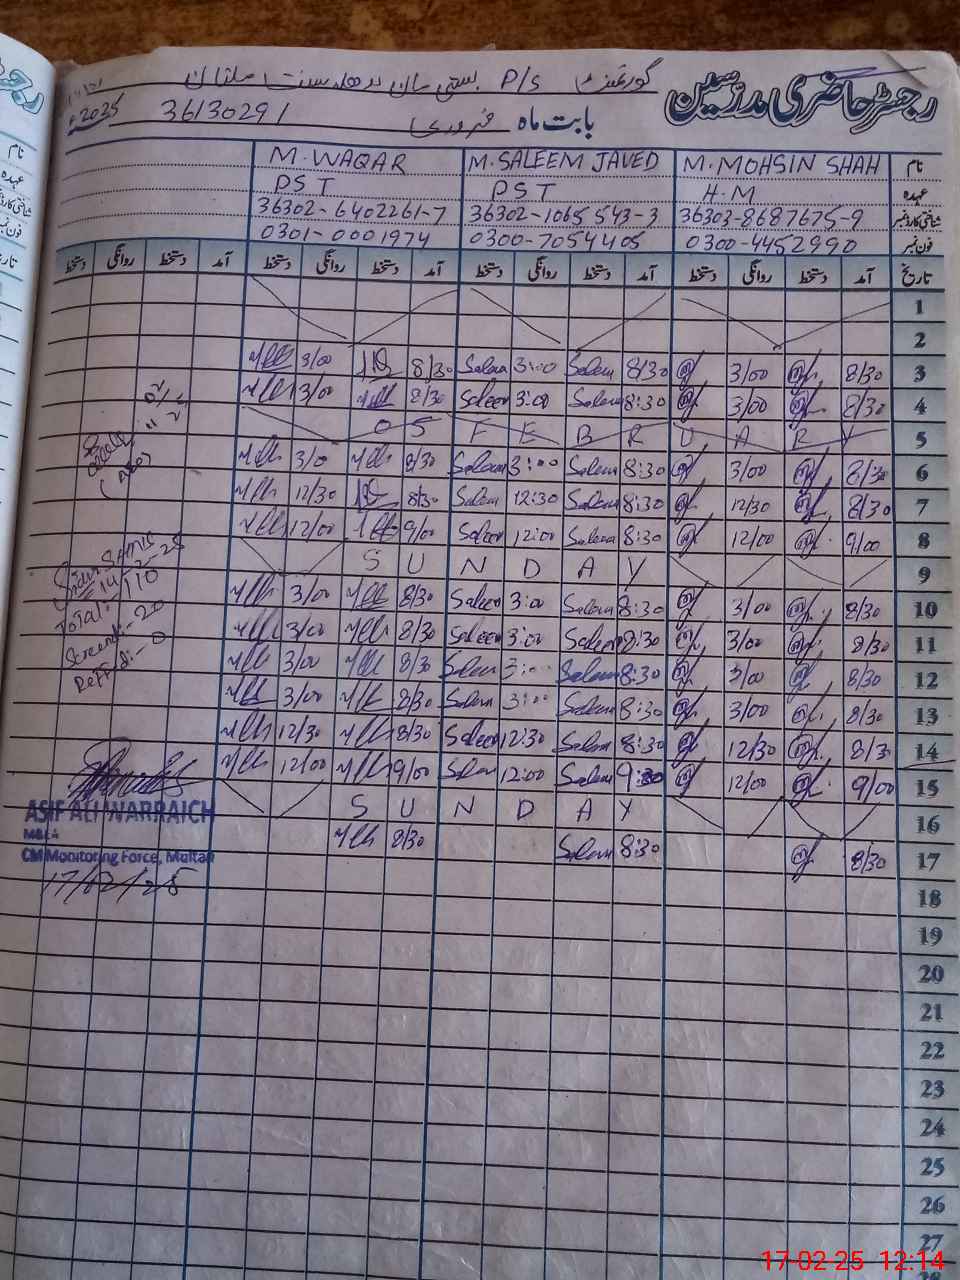 رجسٹر حاضری مدرسین
گورنمنٹ P/S بستی
بابت ماہ فروری 36130291 2025
نام M. MOHSIN SHAH M. SALEEM JAVED M. WAQAR
عہدہ H.M PST PST
شناختی کارڈ نمبر 36303-8687675-9 36302-1065543-3 36302-6402261-7
فون نمبر 0300-4452990 0300-7054405 0301-0001974
تاریخ آمد دستخط روانگی دستخط آمد دستخط روانگی دستخط آمد دستخط روانگی دستخط آمد دستخط روانگی دستخط
1
2
3/00 8/30 Saleem 3:00 Saleem 8/30 3/00 8/30 3
3/00 8/30 Saleem 3:00 Saleem 8:30 3/00 8/30 4
05 FEBRUARY 5
3/0 8/30 Saleem 3:00 Saleem 8:30 3/00 8/30 6
12/30 8/30 Saleem 12:30 Saleem 8:30 12/30 8/30 7
12/00 9/00 Saleem 12:00 Saleem 8:30 12/00 9/00 8
SUNDAY 9
3/00 8/30 Saleem 3:00 Saleem 8:30 3/00 8/30 10
3/00 8/30 Saleem 3:00 Saleem 8:30 3/00 8/30 11
3/00 8/30 Saleem 3:00 Saleem 8:30 3/00 8/30 12
3/00 8/30 Saleem 3:00 Saleem 8:30 3/00 8/30 13
12/30 8/30 Saleem 12:30 Saleem 8:30 12/30 8/30 14
12/00 9/00 Saleem 12:00 Saleem 9:30 12/00 9/00 15
SUNDAY 16
8/30 Saleem 8:30 8/30 17
18
19
20
21
22
23
24
25
26
27
28
14-2-25
Total:- 110
Screend:- 20
Reffed:- 0
ASIF ALI WARRAICH
MBEA
CM Monitoring Force, Multan
17/02/25
17-02-25 12:14